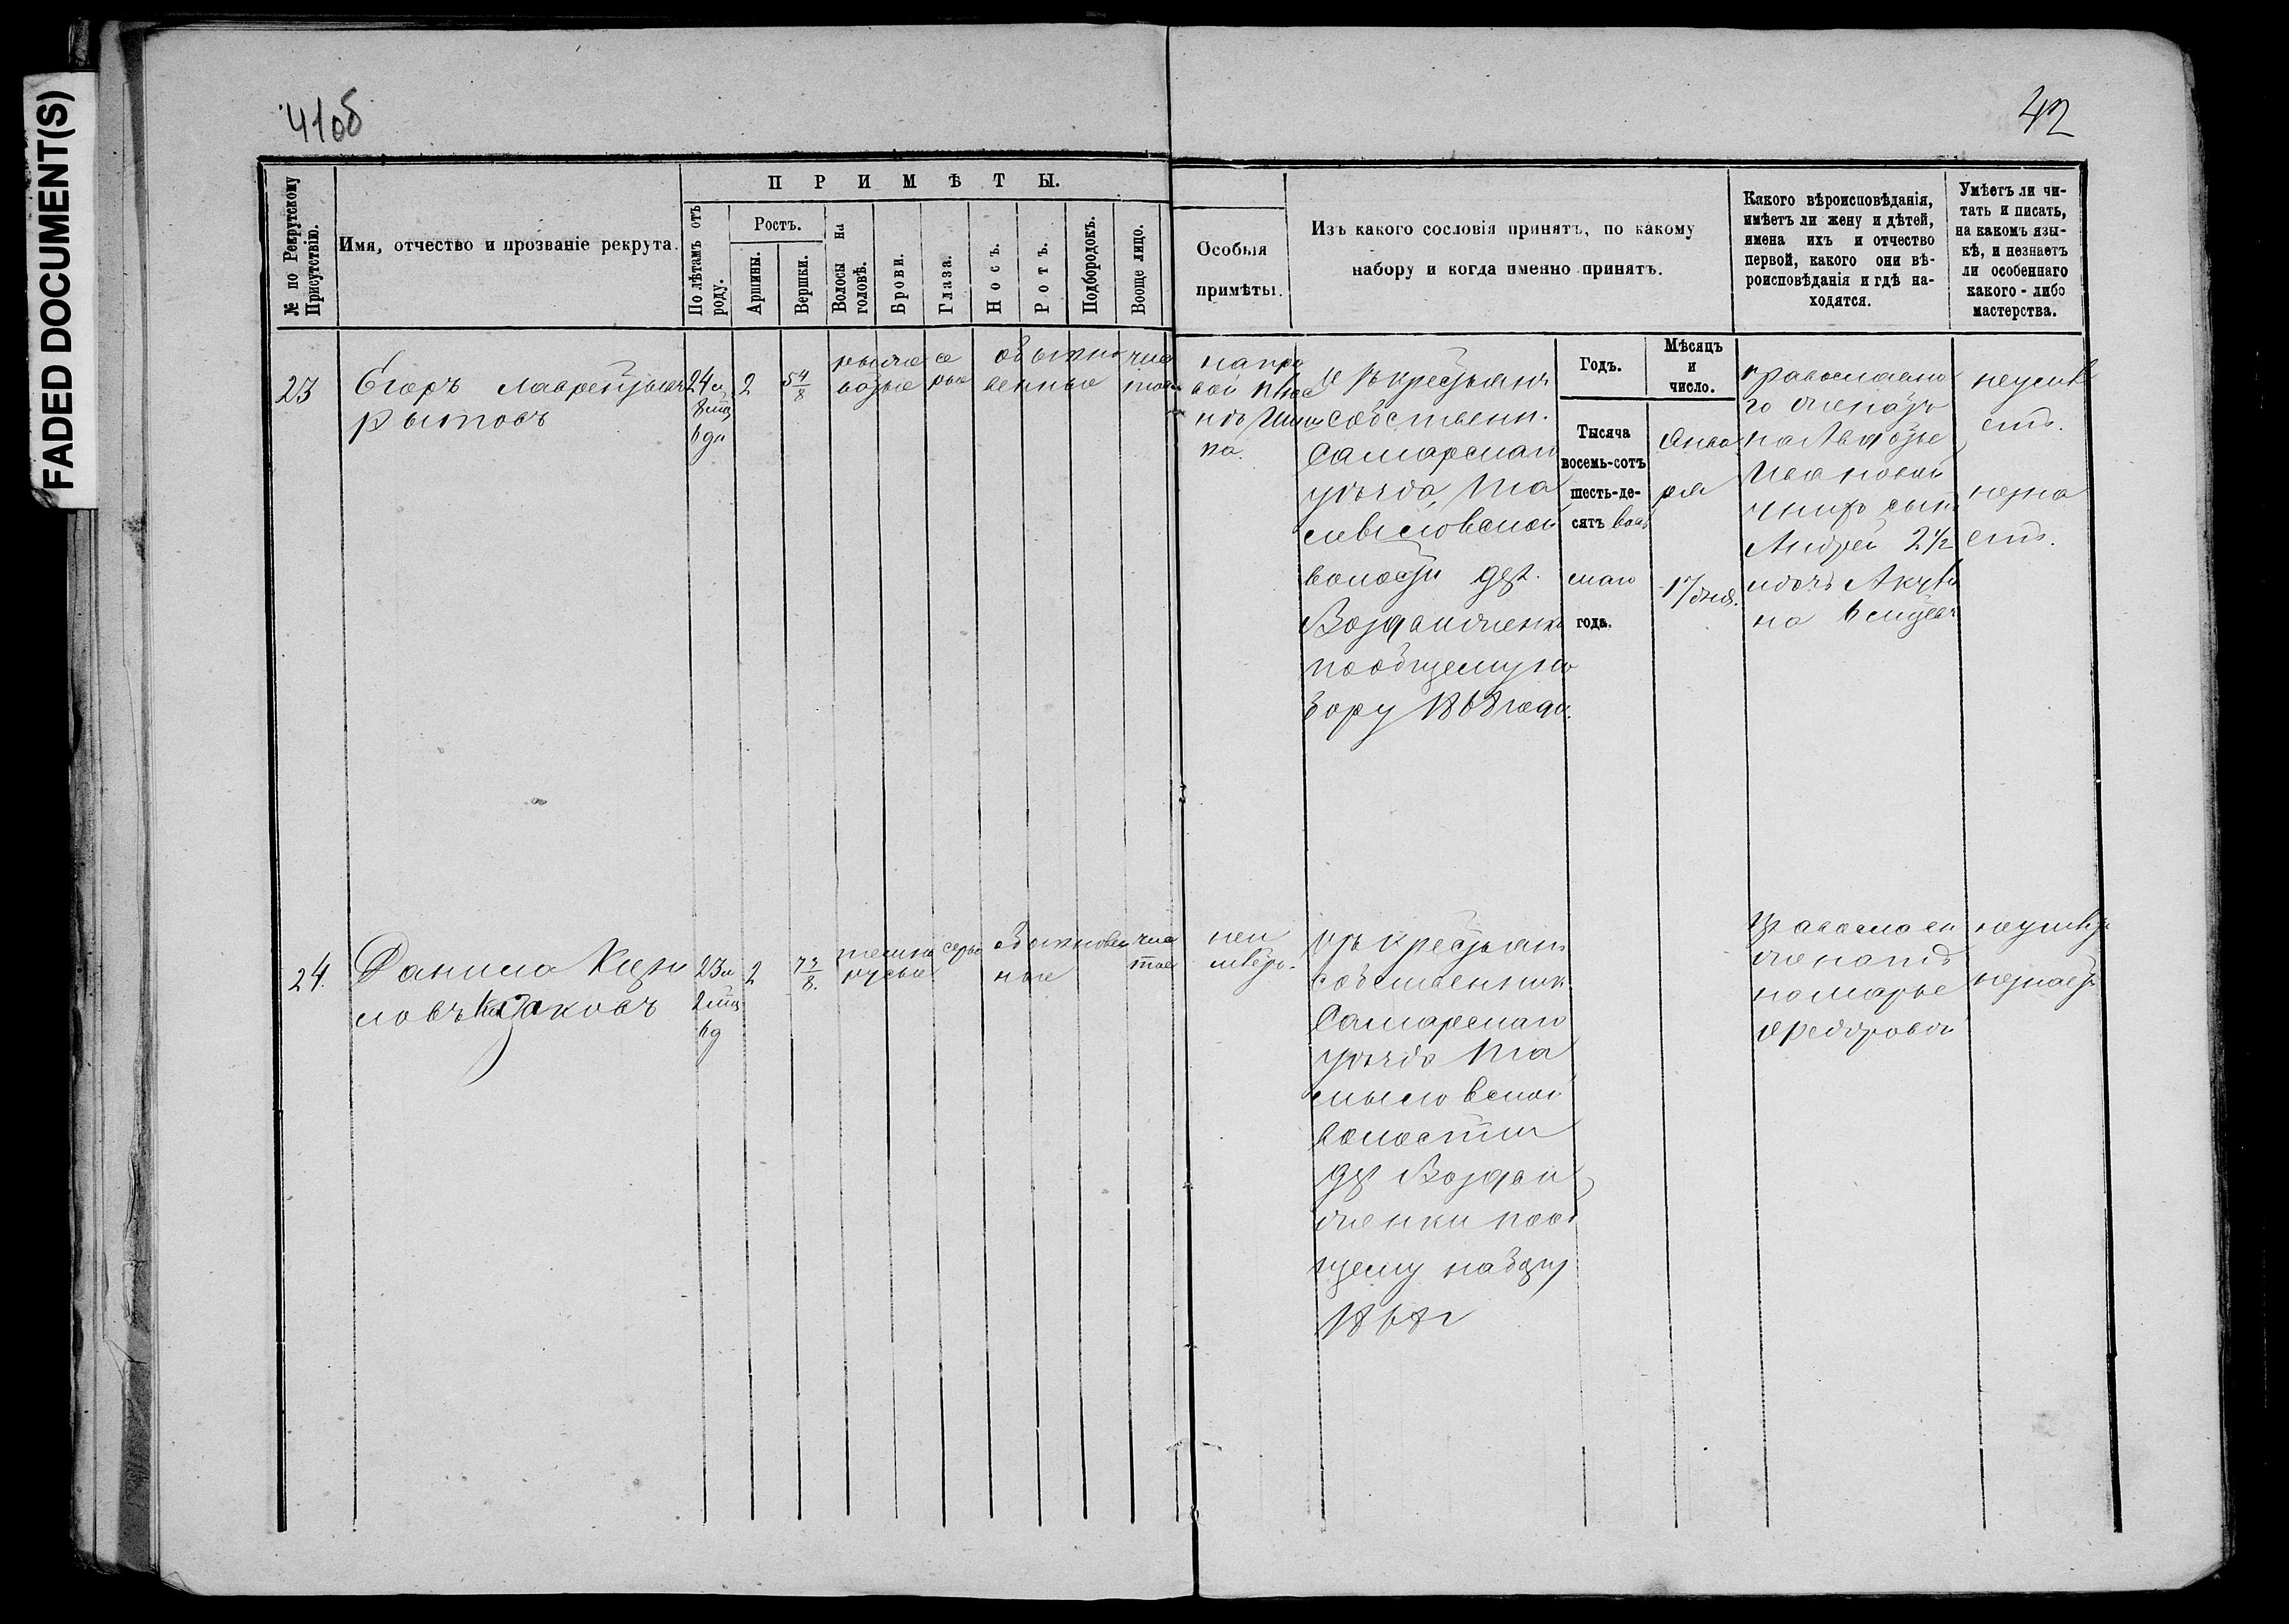 FADED DOCUMENT(S)
41об
42
№ по Рекрутскому Присутствію.
Имя, отчество и прозваніе рекрута.
ПРИМѢТЫ.
По лѣтамъ отъ роду.
Ростъ.
Аршины.
Вершки.
Волосы на головѣ.
Брови.
Глаза.
Носъ.
Ротъ.
Подбородокъ.
Вооще лицо.
Особыя
примѣты.
Изъ какого сословія принятъ, по какому
набору и когда именно принятъ.
Какого вѣроисповѣданія,
имѣетъ ли жену и дѣтей,
имена ихъ и отчество
первой, какого они вѣ-
роисповѣданія и гдѣ на-
ходятся.
Умѣетъ ли чи-
тать и писать,
на какомъ язы-
кѣ, и незнаетъ
ли особеннаго
какого - либо
мастерства.
23
Егоръ Лаврентьевъ
Рытовъ
24 л
8 мц
6 дн
2
5 4/8
се
рые
обыкно
венные
чис
тое
на пра
вой
Изъ крестьянъ
собственн.
Самарскаго
уѣзда, Та
мысловской
волости дер.
пообщему на
бору 1868 года.
Годъ.
Тысяча
восемь-сотъ
шесть-де-
сятъ вось
маго
года.
Мѣсяцъ
и
число.
Янва
ря
17 дня.
православна
го женатъ
на
Ивановой
у нихъ сын
Андрей 2 1/2
и дочь Акули
на 6 месяцев
неумѣ
етъ.
незна
етъ.
24.
Данила Кири
ловъ Казаковъ
23 л
2 мц
6 д
2
7 7/8.
темно
русые
серые
обыкновен
ные
чис
тое
неи
мѣетъ.
Изъ крестьянъ
собственник
Самарскаго
уѣзда Та
мысловской
волости
дер
женки пооб
щему набору
1868 г
Православн
женатъ
на Марье
Федоровой
неумѣетъ
незнаетъ